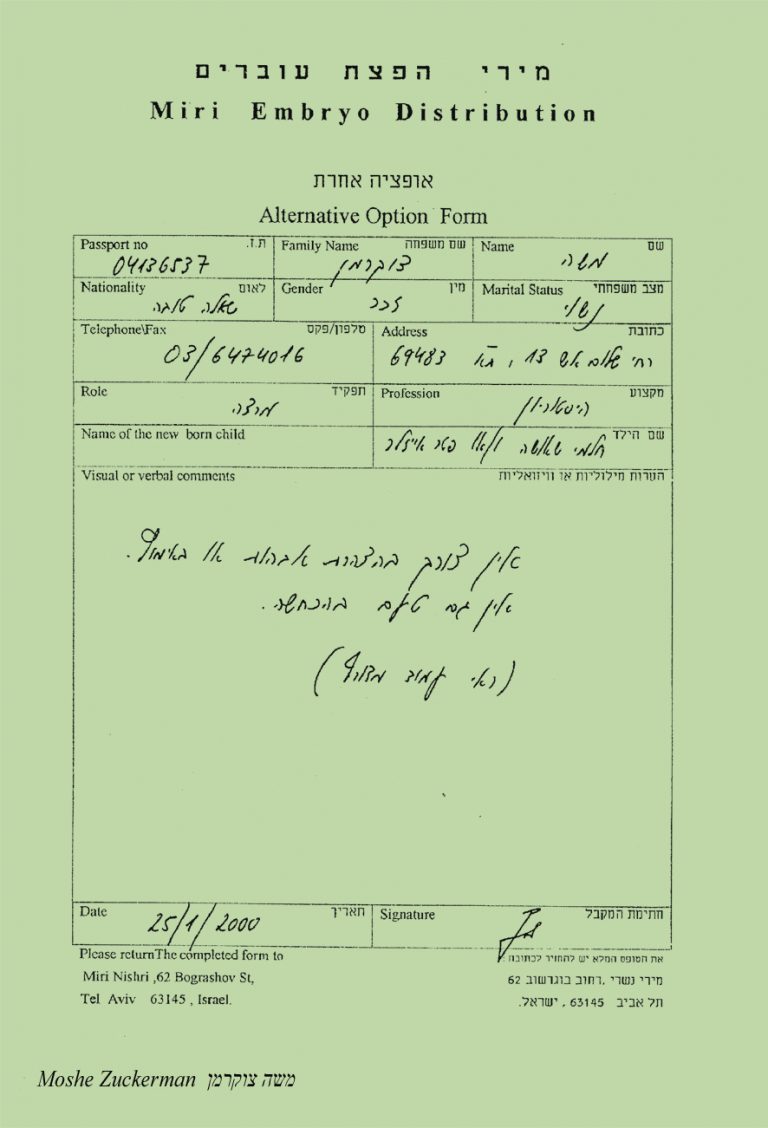 מירי הפצת עוברים
Miri Embryo Distribution
אופציה אחרת
Alternative Option Form
Passport no ת.ז. Family Name שם משפחה Name שם
04136537 צוקרמן משה
Nationality לאום Gender מין Marital Status מצב משפחתי
שאלה טובה זכר נשוי
Telephone\Fax טלפון/פקס Address כתובת
03/6474016 רח' שלום אש 13, ת"א 69483
Role תפקיד Profession מקצוע
מרצה היסטוריון
Name of the new born child שם הילד
Visual or verbal comments הערות מילוליות או וויזואליות
אין צורך בהצהרת אבהות או באימוץ.
אין גם טעם בהכחשה.
(ראי עמוד מצורף)
Date תאריך Signature חתימת המקבל
25/1/2000
Please returnThe completed form to את הטופס המלא יש להחזיר לכתובת:
Miri Nishri ,62 Bograshov St, מירי נשרי, רחוב בוגרשוב 62
Tel Aviv 63145 , Israel. תל אביב 63145 , ישראל.
Moshe Zuckerman משה צוקרמן